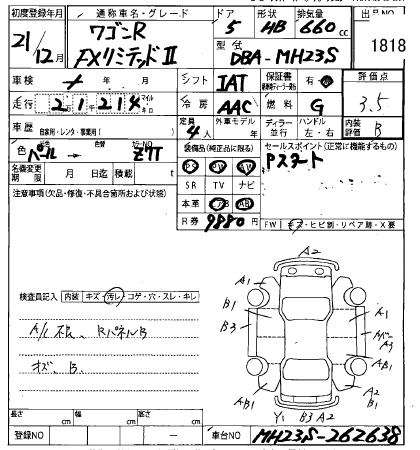 初度登録年月 通称車名・グレード ドア 形状 排気量 出品NO
21/12月 ワゴンR FXリミテッドⅡ 5 HB 660cc 1818
型式 DBA-MH23S
車検 年 月 シフト IAT 保証書 有 評価点 3.5
走行 2 1 2 1 4 マイル キロ 冷房 AAC 燃料 G
車歴 自家用・レンタ・事業用( ) 定員 4人 外車モデル 年 ディーラー 並行 ハンドル 左・右 内装評価 B
色 パール 色替 カラーNO Z7T 装備品(純正品に限る) セールスポイント(正常に機能するもの)
名義変更期限 月 日迄 積載 t PS PW AW Pスタート
注意事項(欠品・修復・不具合箇所および状態) SR TV ナビ
本革 AB
R券 9880円 FW キズ・ヒビ割・リペア跡・X要
A2
A1 A1
B1
検査員記入 内装 キズ・汚レ・コゲ・穴・スレ・キレ B3 A1
A3
A/C不良、RパネルB
キズ、B、
A1 A2
AB1 B1
Y1 B3 A2
長さ cm 幅 cm 高さ cm
登録NO 車台NO MH23S-262638